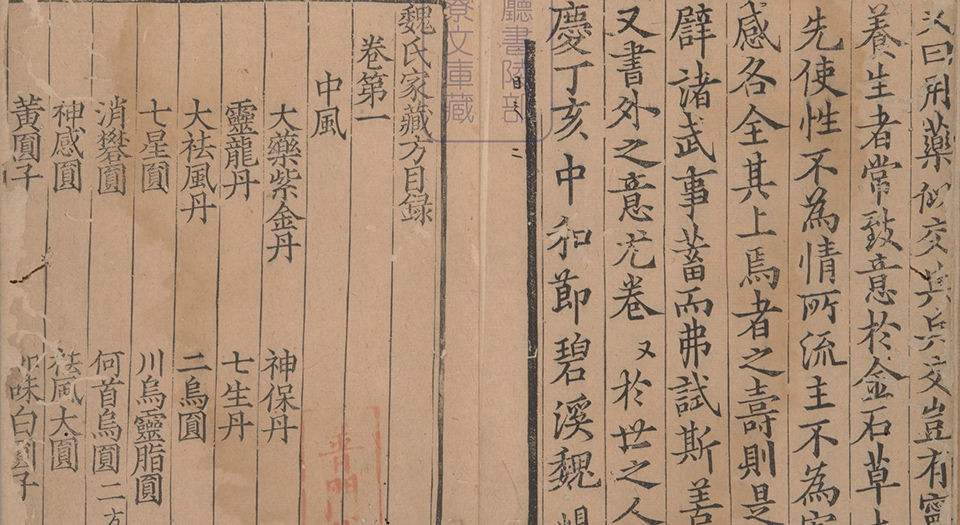 又曰用藥似交兵兵交豈有寧
養生者常致意於金石草
先使性不為情所流主不為
感各全其上焉者之壽則是
辟諸武事蓄而弗試斯善
又書外之意尤卷又於世之人
慶丁亥中和節碧溪魏峴
廳書陵部
寮文庫藏
魏氏家藏方目録
卷第一
中風
大藥紫金丹 神保丹
靈龍丹 七生丹
大祛風丹 二烏圓
七星圓 川烏靈脂圓
消礬圓 何首烏圓二方
神感圓 祛風大圓
黃圓子 味白圓子